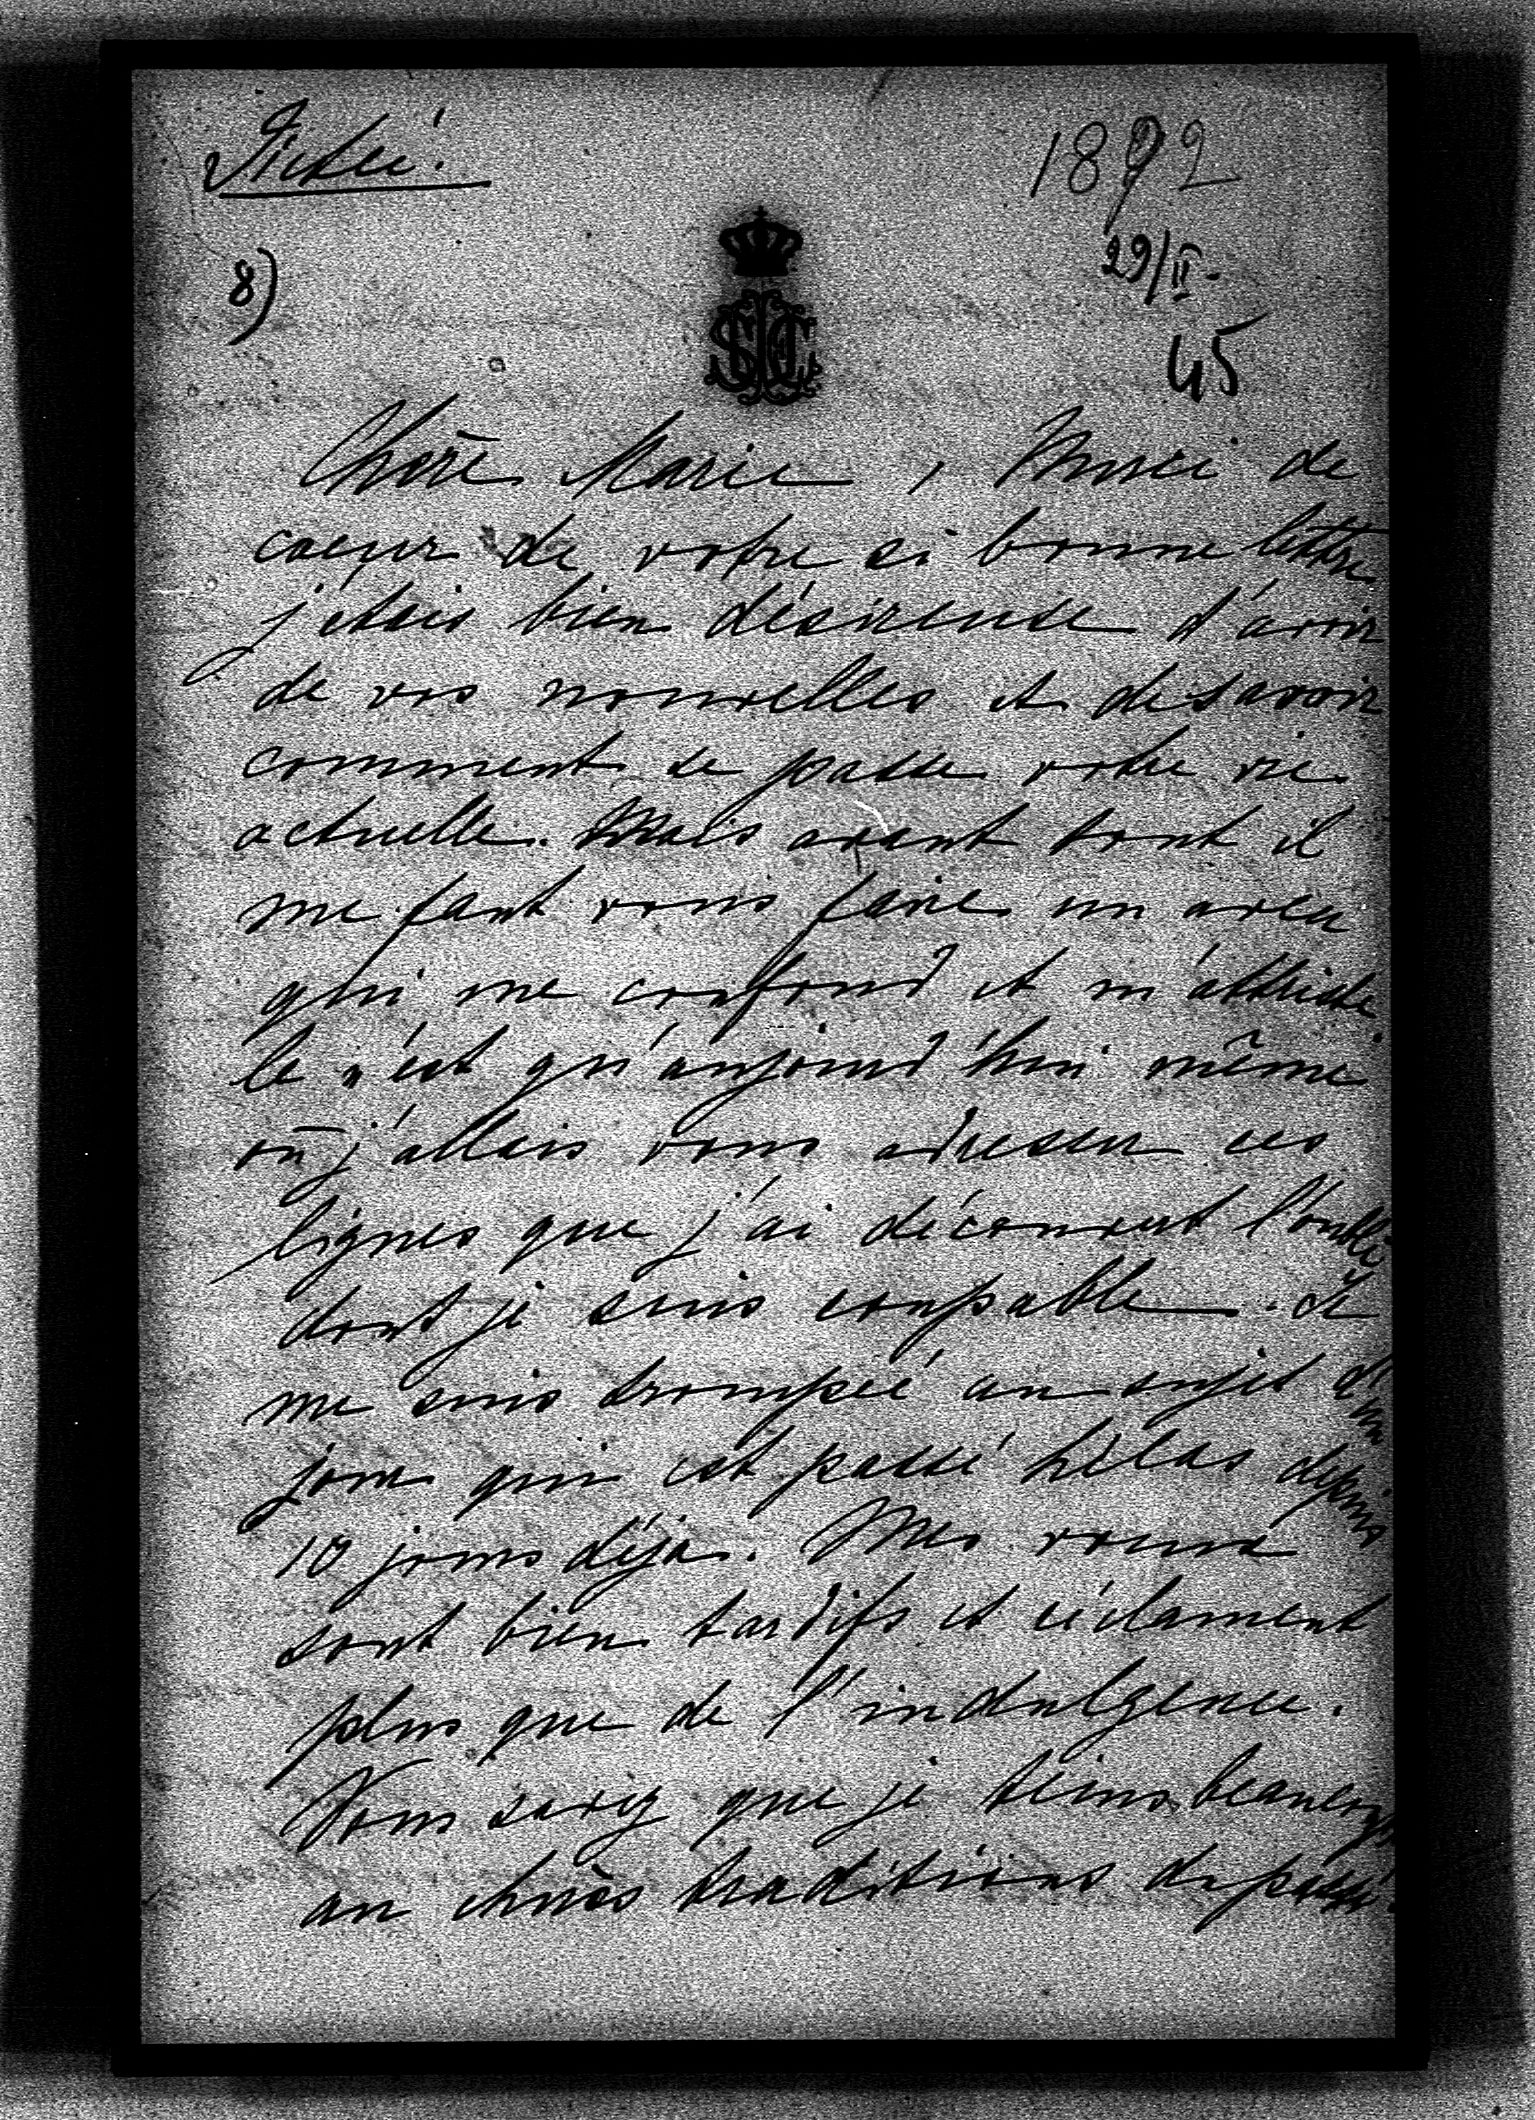 1892
8)
29/II-
45
Chère Marie, Merci de
coeur de votre si bonne lettre
j'étais bien désireuse d'avoir
de vos nouvelles et de savoir
comment se passe votre vie
actuelle. Mais avant tout il
me faut vous faire un aveu
qui me confond et m'attriste.
Ce n'est qu'aujourd'hui même
où j'allais vous adresser ces
lignes que j'ai découvert l'oubli
dont je suis coupable. Je
me suis trompée au sujet d'un
jour qui est passé hélas depuis
10 jours déjà. Mes voeux
sont bien tardifs et réclament
plus que de l'indulgence.
Vous savez que je tiens beaucoup
au chères traditions du passé